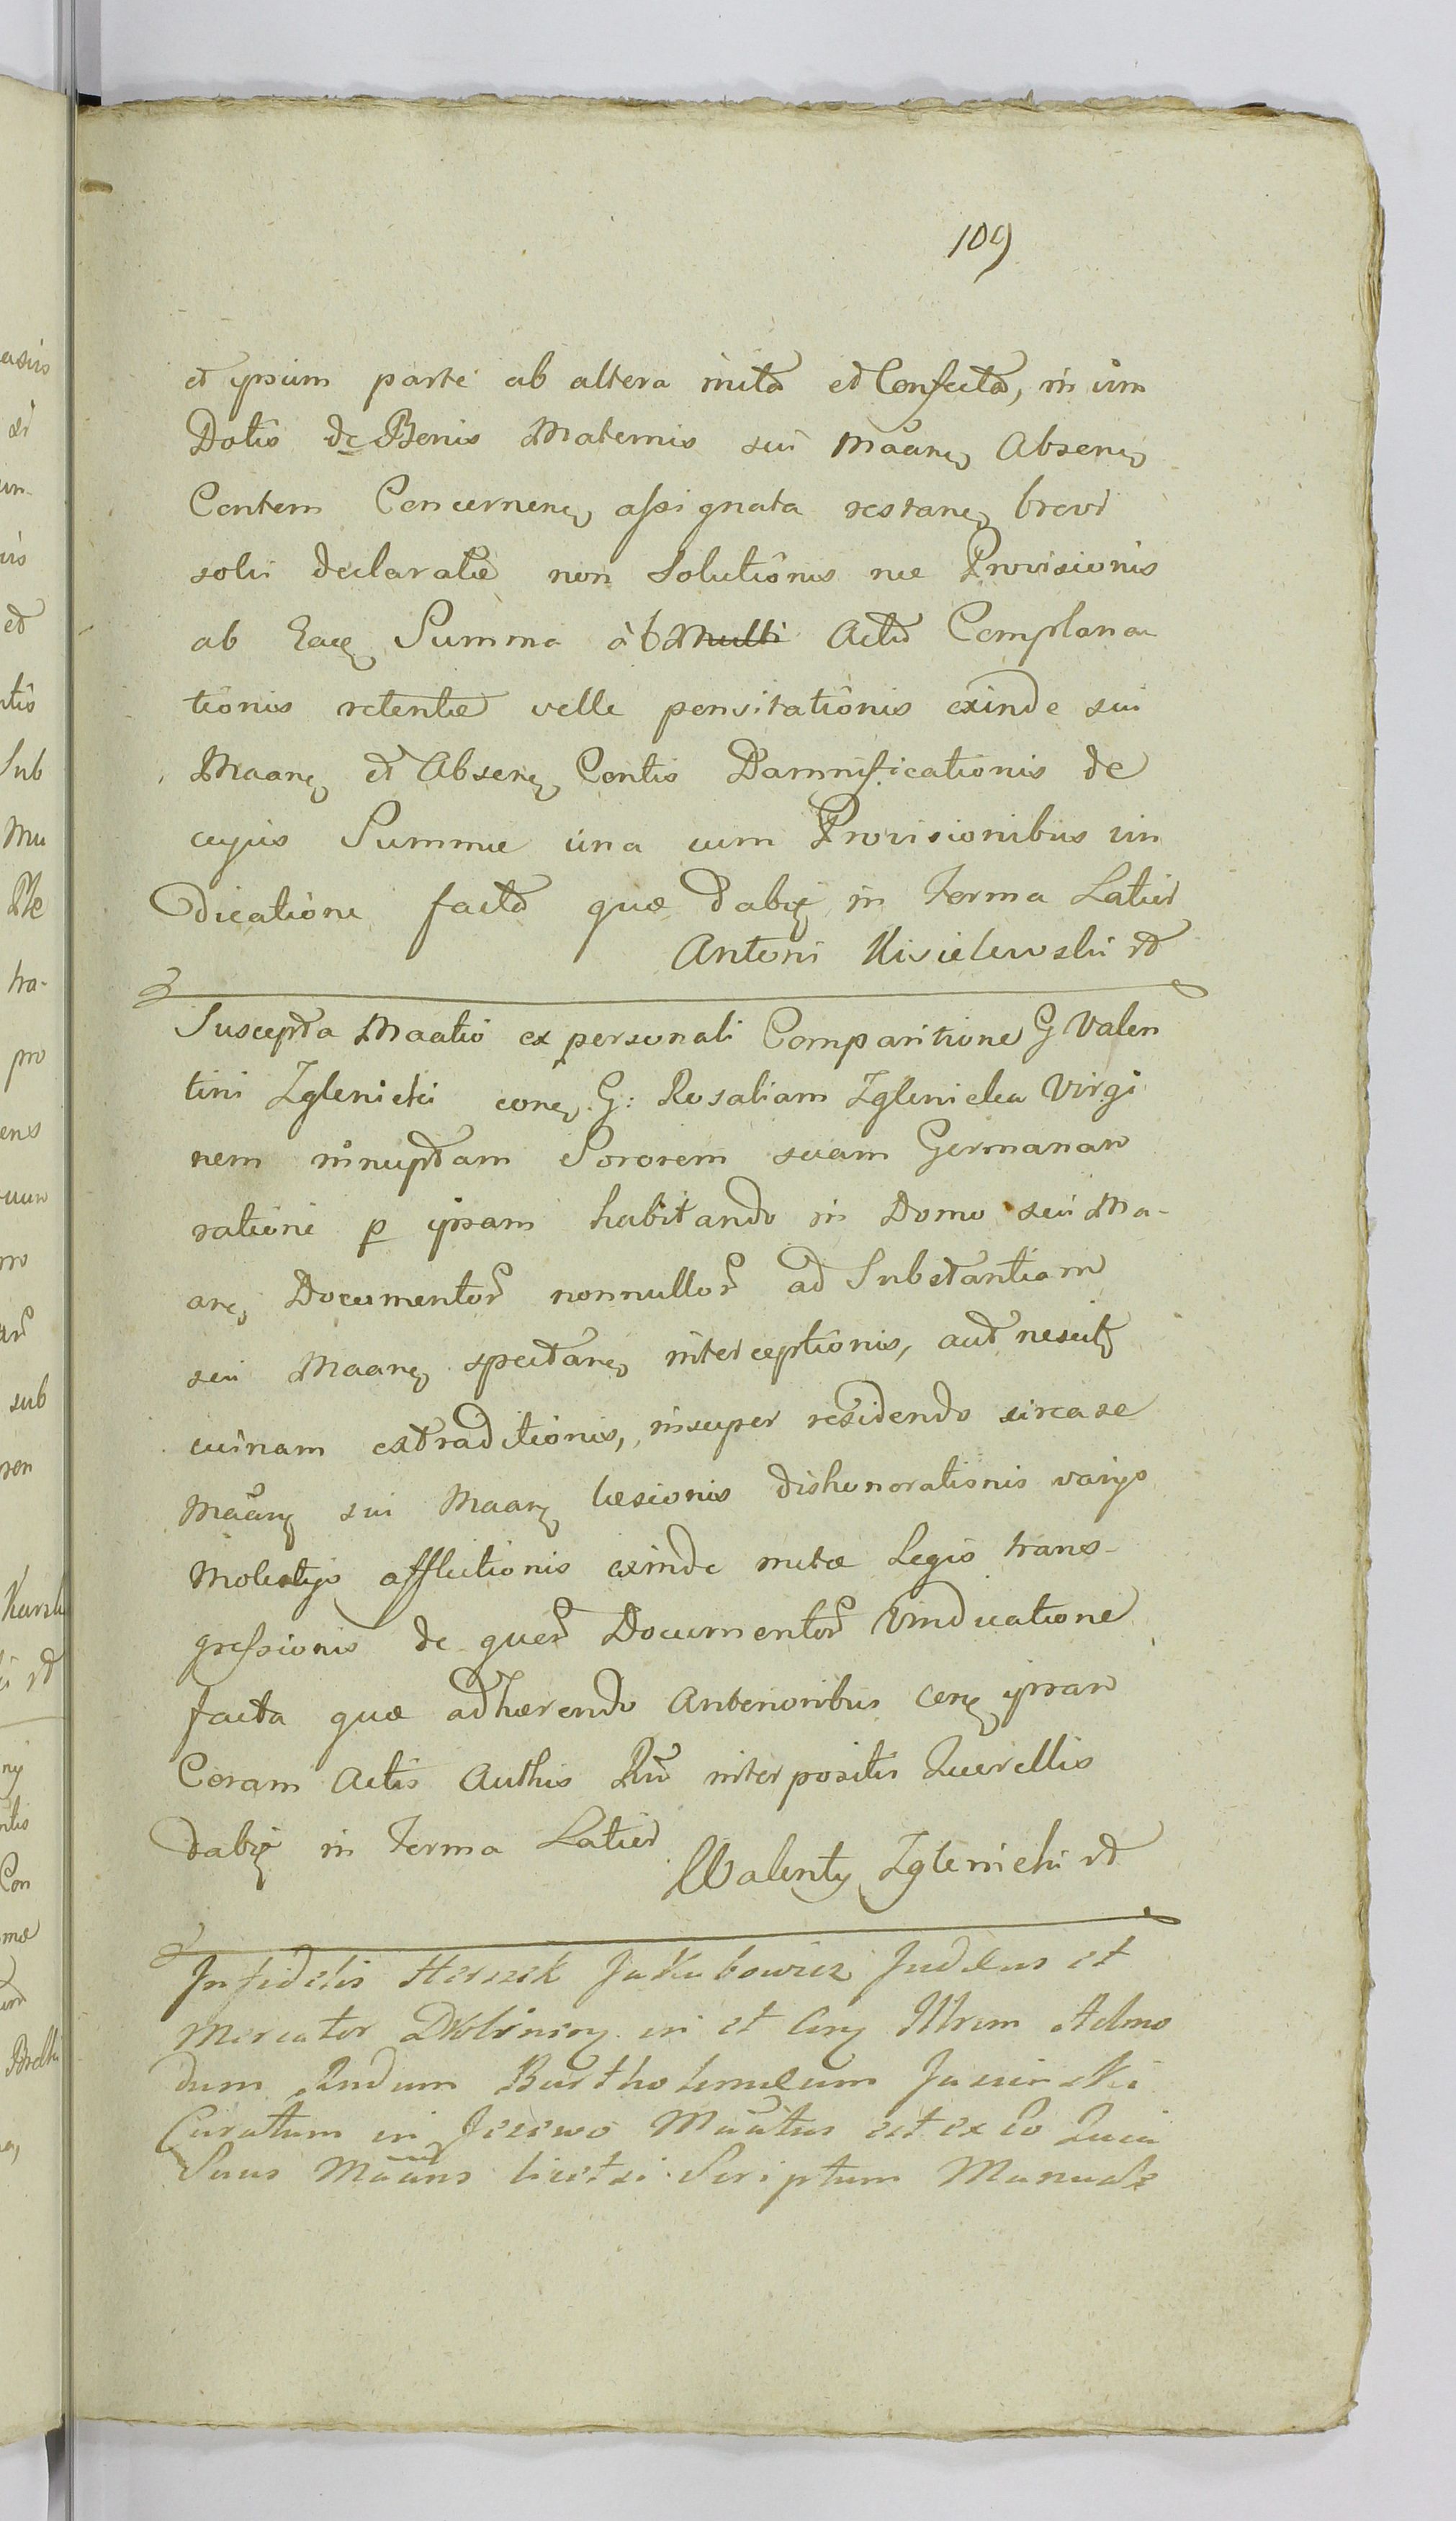 109
et ipsum parte ab altera inita et Confecta, in vim
Dotis de Benis Maternis sui Mâanę Absenę
Contem Concernenę assignata restanę brevi
solvi declaratæ non Solutionis nec Provisionis
ab Eaę Summa àb Multi Actu Complana
tionis retentæ velle pensitationis exinde sui
Maanę et Absenę Contis Damnificationis de
cujus Summæ una cum Provisionibus vin
dicatione facta quæ dabię in Terma Latius
Antoni Kisielewski rd
Suscepta Maatio ex personali Comparitione G Valen
tini Zglenicki conę G: Rosaliam Zglenicka Virgi
nem innuptam Sororem suam Germanam
ratione p ipsam habitando in Domo sui Ma-
anę Documentor nonnullor ad Substantiam
sui Maanę spectanę interceptionis, aut nescitę
cuinam extraditionis, insuper residendo circa se
Mâanę sui Maanę læsionis dishonorationis varijs
Molestijs afflictionis exinde metæ Legis trans-
gressionis de quer Documentor Vindicatione
facta quæ adhærendo Anterioribus conę ipsam
Coram Actis Authis Rw interpositis Querellis
dabię in Terma Latius
Walenty Zglenicki rd
Infidelis Herszek Jakubowicz Judæus et
Mercator Drobinenę in et Conę Illrem Admo
dum Rndum Bartholomæum Jasinski
Curatum in Jezewo Mâatus est ex eo Quia
Suus Mâans licet si Scriptum Manuale
asiis
et
ntis
Sub
Mu
tra-
pro
sub
rd
ntis
Con